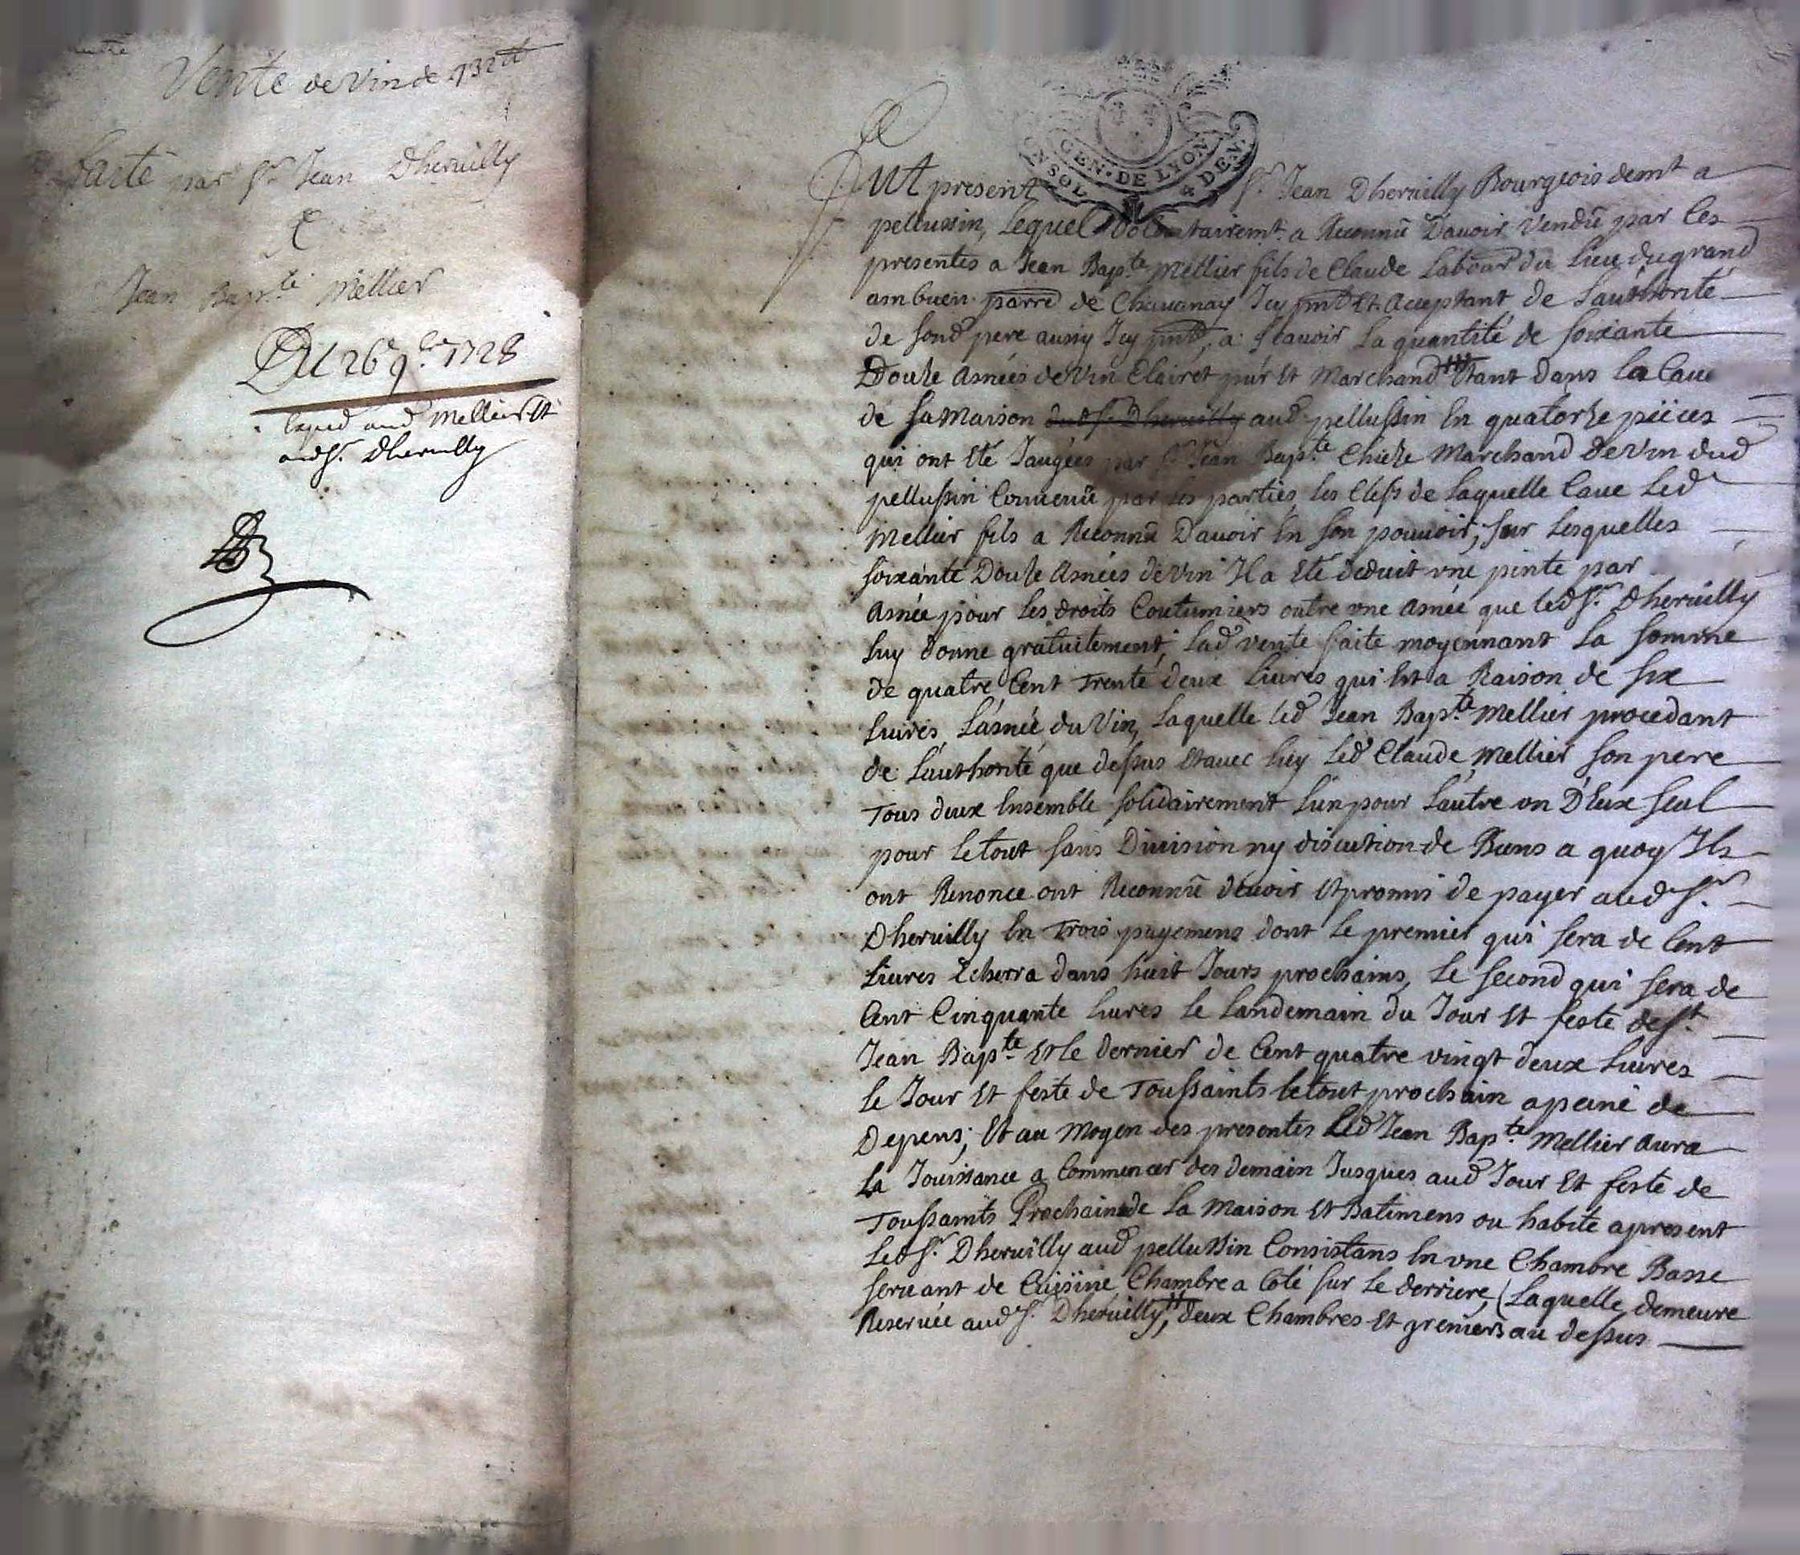 Vente de Vin de 432tt
faite par Sr. Jean Dheruilly
&
Jean Bapte. Mellier
Du 26e 9bre 1728
Exped aud Mellier Et
aud Sr. Dheruilly
GEN. DE LYON
SOL 4 DEN.
Fut present Sr. Jean Dheruilly Bourgeois demt a
pellussin, Lequel Volontairemt. a Reconnu D'auoir Vendu par les
presentes a Jean Bapte. Mellier fils de Claude Labour du lieu du grand
ambuen parre de Chauanay Icy pnt Et Acceptant de Lauthorité
de sond pere aussy Icy pnt, a Scauoir La quantité de soixante
Douze Asnées de Vin Clairet pur Et Marchand Etant dans la Caue
de sa Maison dud Sr. Dheruilly aud pellussin En quatorze pieces
qui ont Eté Jaugées par Sr. Jean Bapte. Chieze Marchand De Vin dud
pellussin Conuenu par les parties, les Clefs de laquelle Caue Led
Mellier fils a Reconnu D'auoir En son pouuoir, sur Lesquelles
soixante Douze Asnées de Vin Il a Eté deduit vne pinte par
Asnée pour les droits Coutumiers outre vne Asnée que led Sr. Dheruilly
luy donne gratuitement, Lad vente faite moyennant La somme
de quatre Cent Trente deux Liures qui Est a Raison de six
Liures L'asnée du Vin, Laquelle led Jean Bapte. Mellier procedant
de L'authorité que dessus Et auec luy Led Claude Mellier son pere
Tous deux Ensemble solidairement L'un pour L'autre vn D'Eux seul
pour Le tout sans Diuision ny discution de Biens a quoy Ils
ont Renonce ont Reconnu deuoir Et promis de payer aud Sr.
Dheruilly En Trois payemens dont Le premier qui sera de Cent
Liures Echerra dans huit Jours prochains, Le second qui sera de
Cent Cinquante Liures Le Landemain du Jour Et feste de St.
Jean Bapte. Et le dernier de Cent quatre vingt deux Liures
le Jour Et feste de Toussaints le tout prochain a peine de
Depens; Et au Moyen des presentes Led Jean Bapte. Mellier Aura
La Jouissance a Commencer des demain Jusques aud Jour Et feste de
Toussaints Prochain de La Maison Et Batimens ou habite apresent
Led Sr. Dheruilly aud pellussin Consistans En vne Chambre Basse
seruant de Cuisine, Chambre a Coté sur Le derriere, (Laquelle demeure
Reseruée aud Sr. Dheruilly), deux Chambres Et greniers au dessus